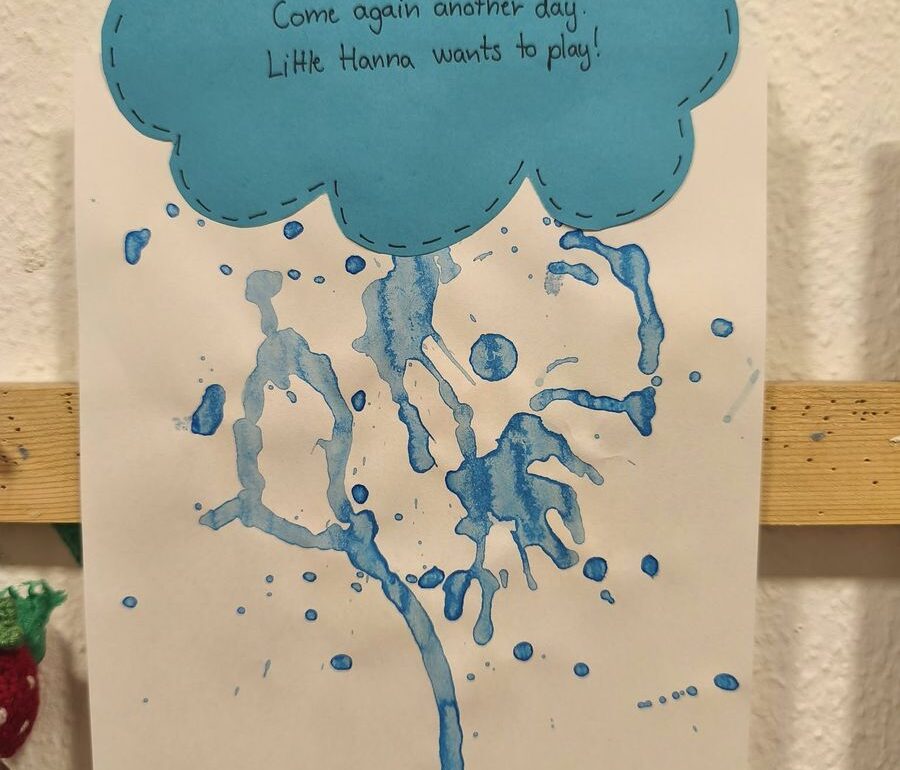 Come again another day.
Little Hanna wants to play!